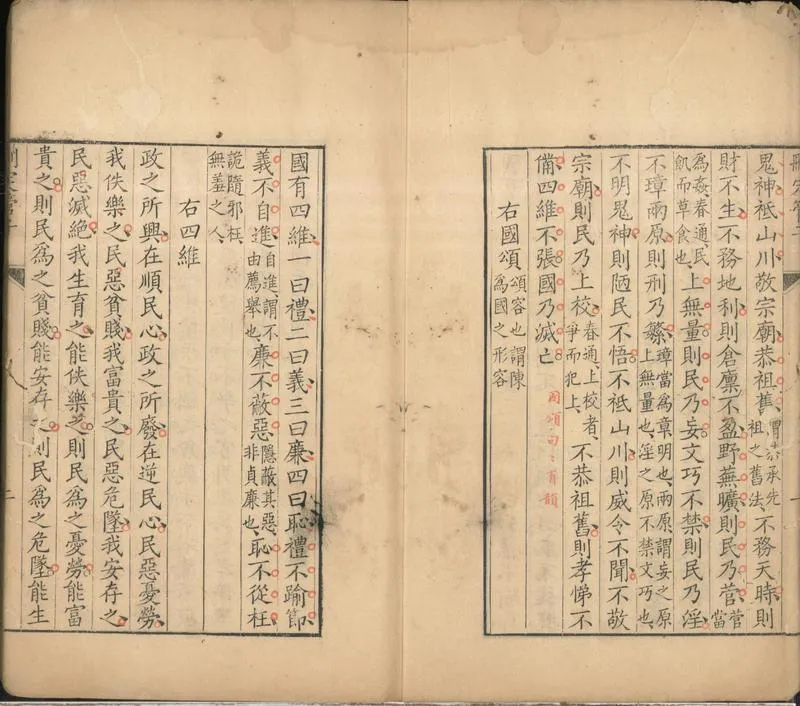 鬼神祗山川敬宗廟恭祖舊謂恭承先祖之舊法不務天時則
財不生不務地利則倉廩不盈野蕪曠則民乃菅菅當
為姦春通民飢而草食也上無量則民乃妄文巧不禁則民乃淫
不璋兩原則刑乃繁璋當為章明也兩原謂妄之原上無量也淫之原不禁文巧也
不明鬼神則陋民不悟不祗山川則威令不聞不敬
宗廟則民乃上校春通上校者爭而犯上不恭祖舊則孝悌不
備四維不張國乃滅亡
國頌句々有韻
右國頌頌容也謂陳為國之形容
國有四維一曰禮二曰義三曰廉四曰恥禮不踰節
義不自進自進謂不由薦舉也廉不蔽惡隱蔽其惡非貞廉也恥不從枉
詭隨邪枉無羞之人
右四維
政之所興在順民心政之所廢在逆民心民惡憂勞
我佚樂之民惡貧賤我富貴之民惡危墜我安存之
民惡滅絕我生育之能佚樂之則民為之憂勞能富
貴之則民為之貧賤能安存之則民為之危墜能生